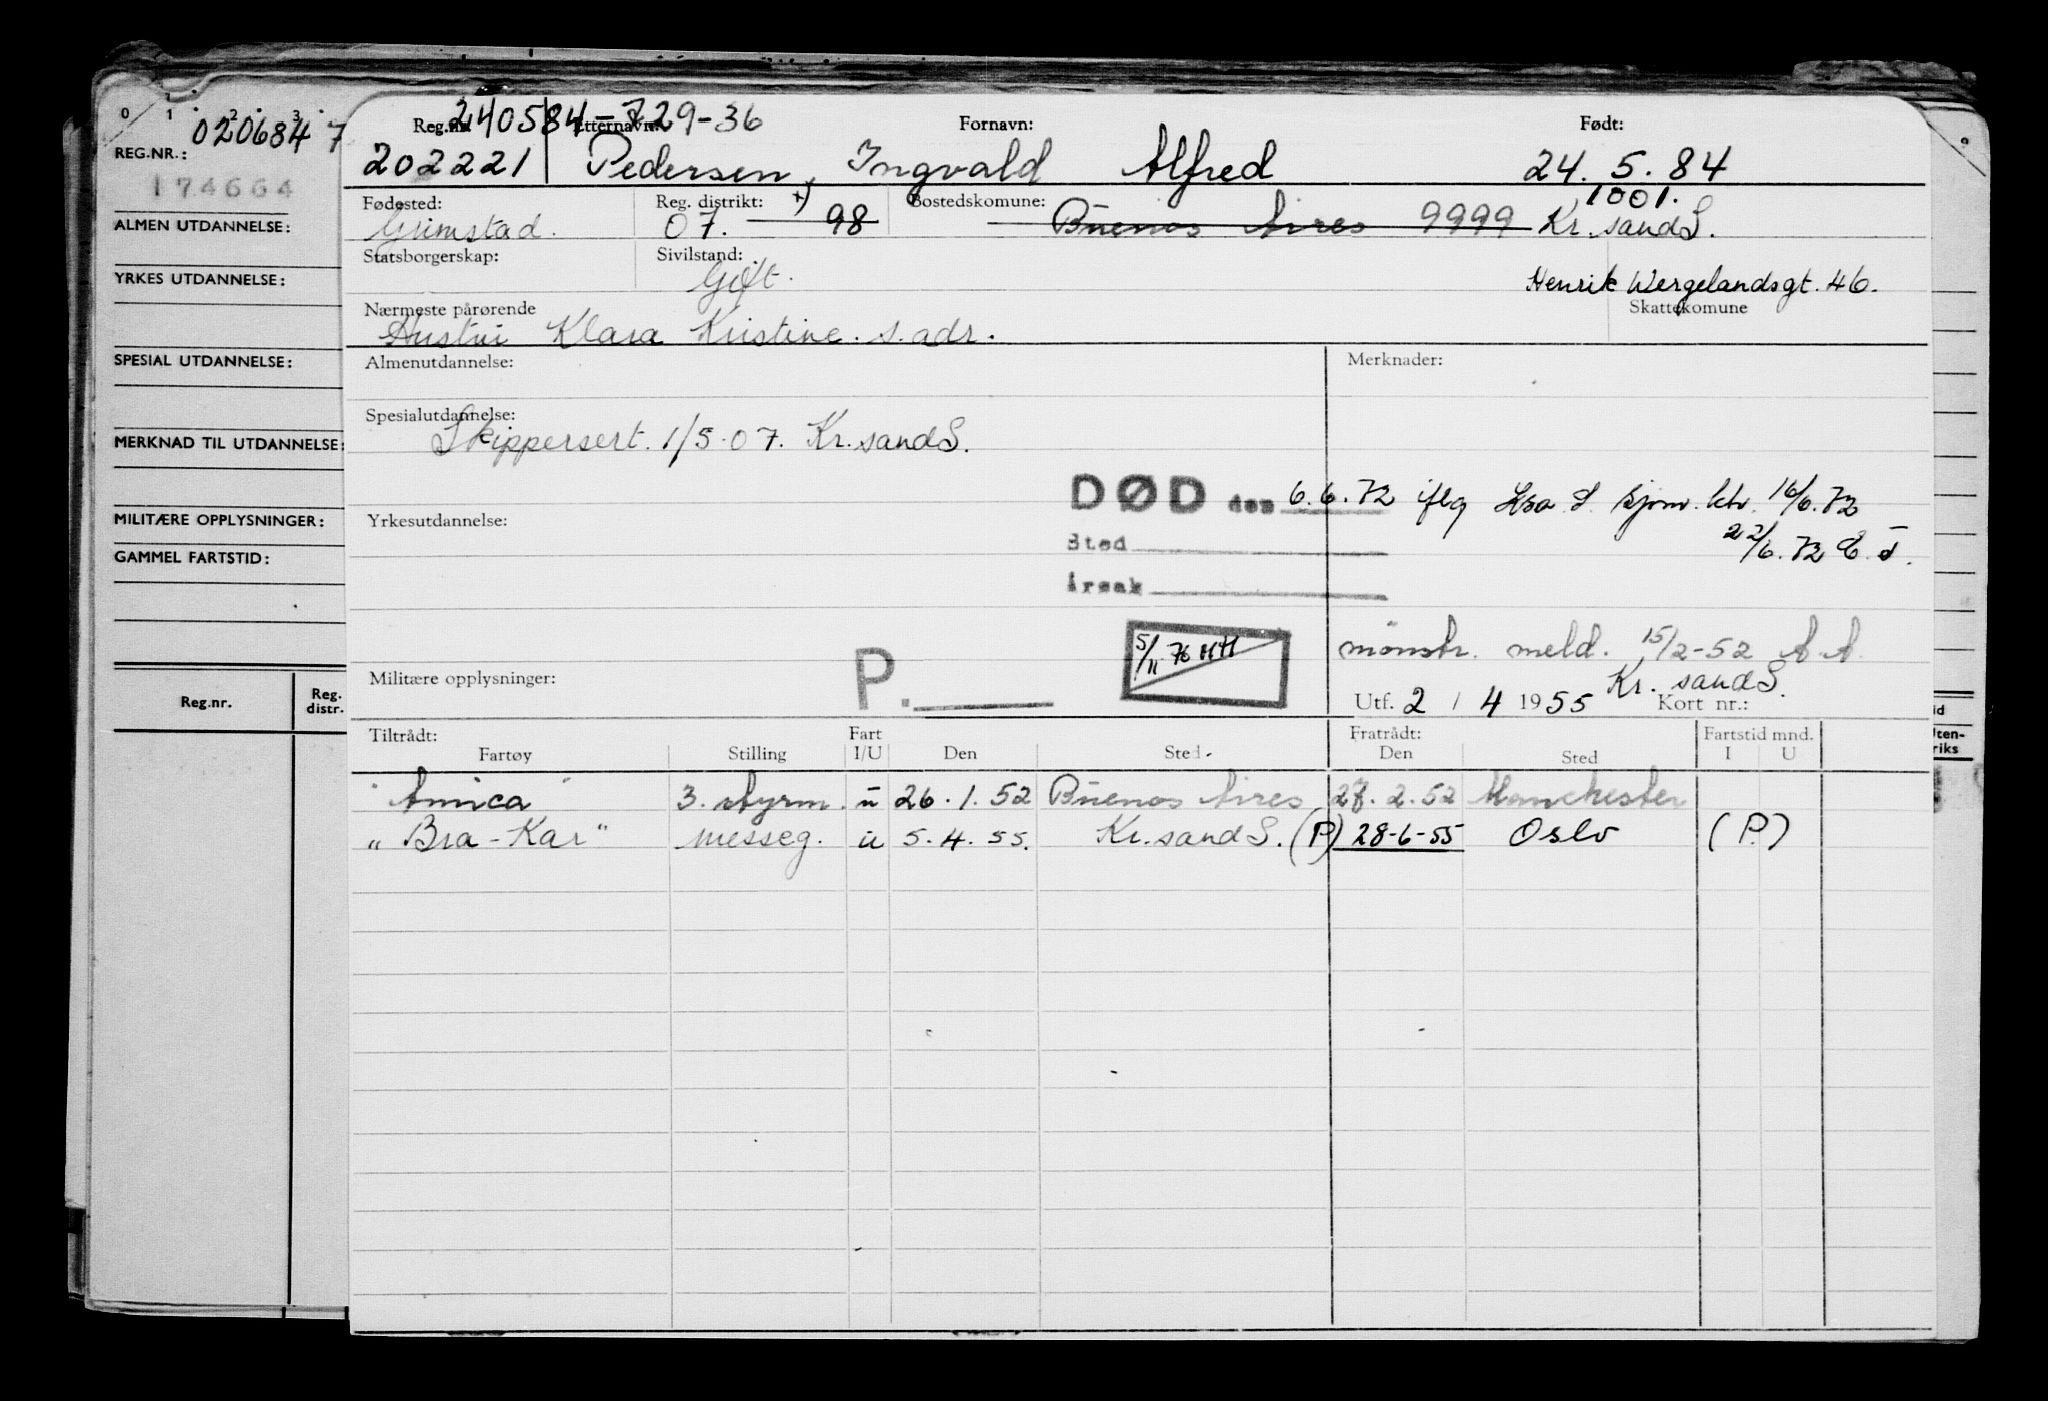 0 1 2 3
020684 7
REG.NR.:
174664
ALMEN UTDANNELSE:
YRKES UTDANNELSE:
SPESIAL UTDANNELSE:
MERKNAD TIL UTDANNELSE:
MILITÆRE OPPLYSNINGER:
GAMMEL FARTSTID:
Reg.nr. Reg. distr.
240584-729-36
Reg.nr. Etternavn: Fornavn: Født:
202221 Pedersen, Ingvald Alfred 24.5.84
Fødested: Reg. distrikt: x) Bostedskomune: 1001.
Grimstad. 07. 98 Buenos Aires 9999 Kr.sandS.
Statsborgerskap: Sivilstand:
Gift. Henrik Wergelandsgt. 46.
Nærmeste pårørende Skattekomune
Hustru Klara Kristine. s. adr.
Almenutdannelse: Merknader:
Spesialutdannelse:
Skippersert. 1/5-07. Kr.sandS.
DØD den 6.6.72 iflg S. sjøm. ktr. 16/6.72
Yrkesutdannelse: 22/6.72
Sted
Årsak
5/11-76 mønstr. meld. 15/2-52 A.A.
P. Kr.sandS.
Militære opplysninger: Utf. 2 / 4 1955 Kort nr.:
Tiltrådt: Fart Fratrådt: Fartstid mnd.
Fartøy Stilling I/U Den Sted Den Sted I U
"Amica" 3. styrm. u 26.1.52 Buenos Aires 27.2.52 Manchester
"Bra-Kar" messeg. u 5.4.55. Kr.sandS. (P) 28-6-55 Oslo (P.)
id
Uten-
riks